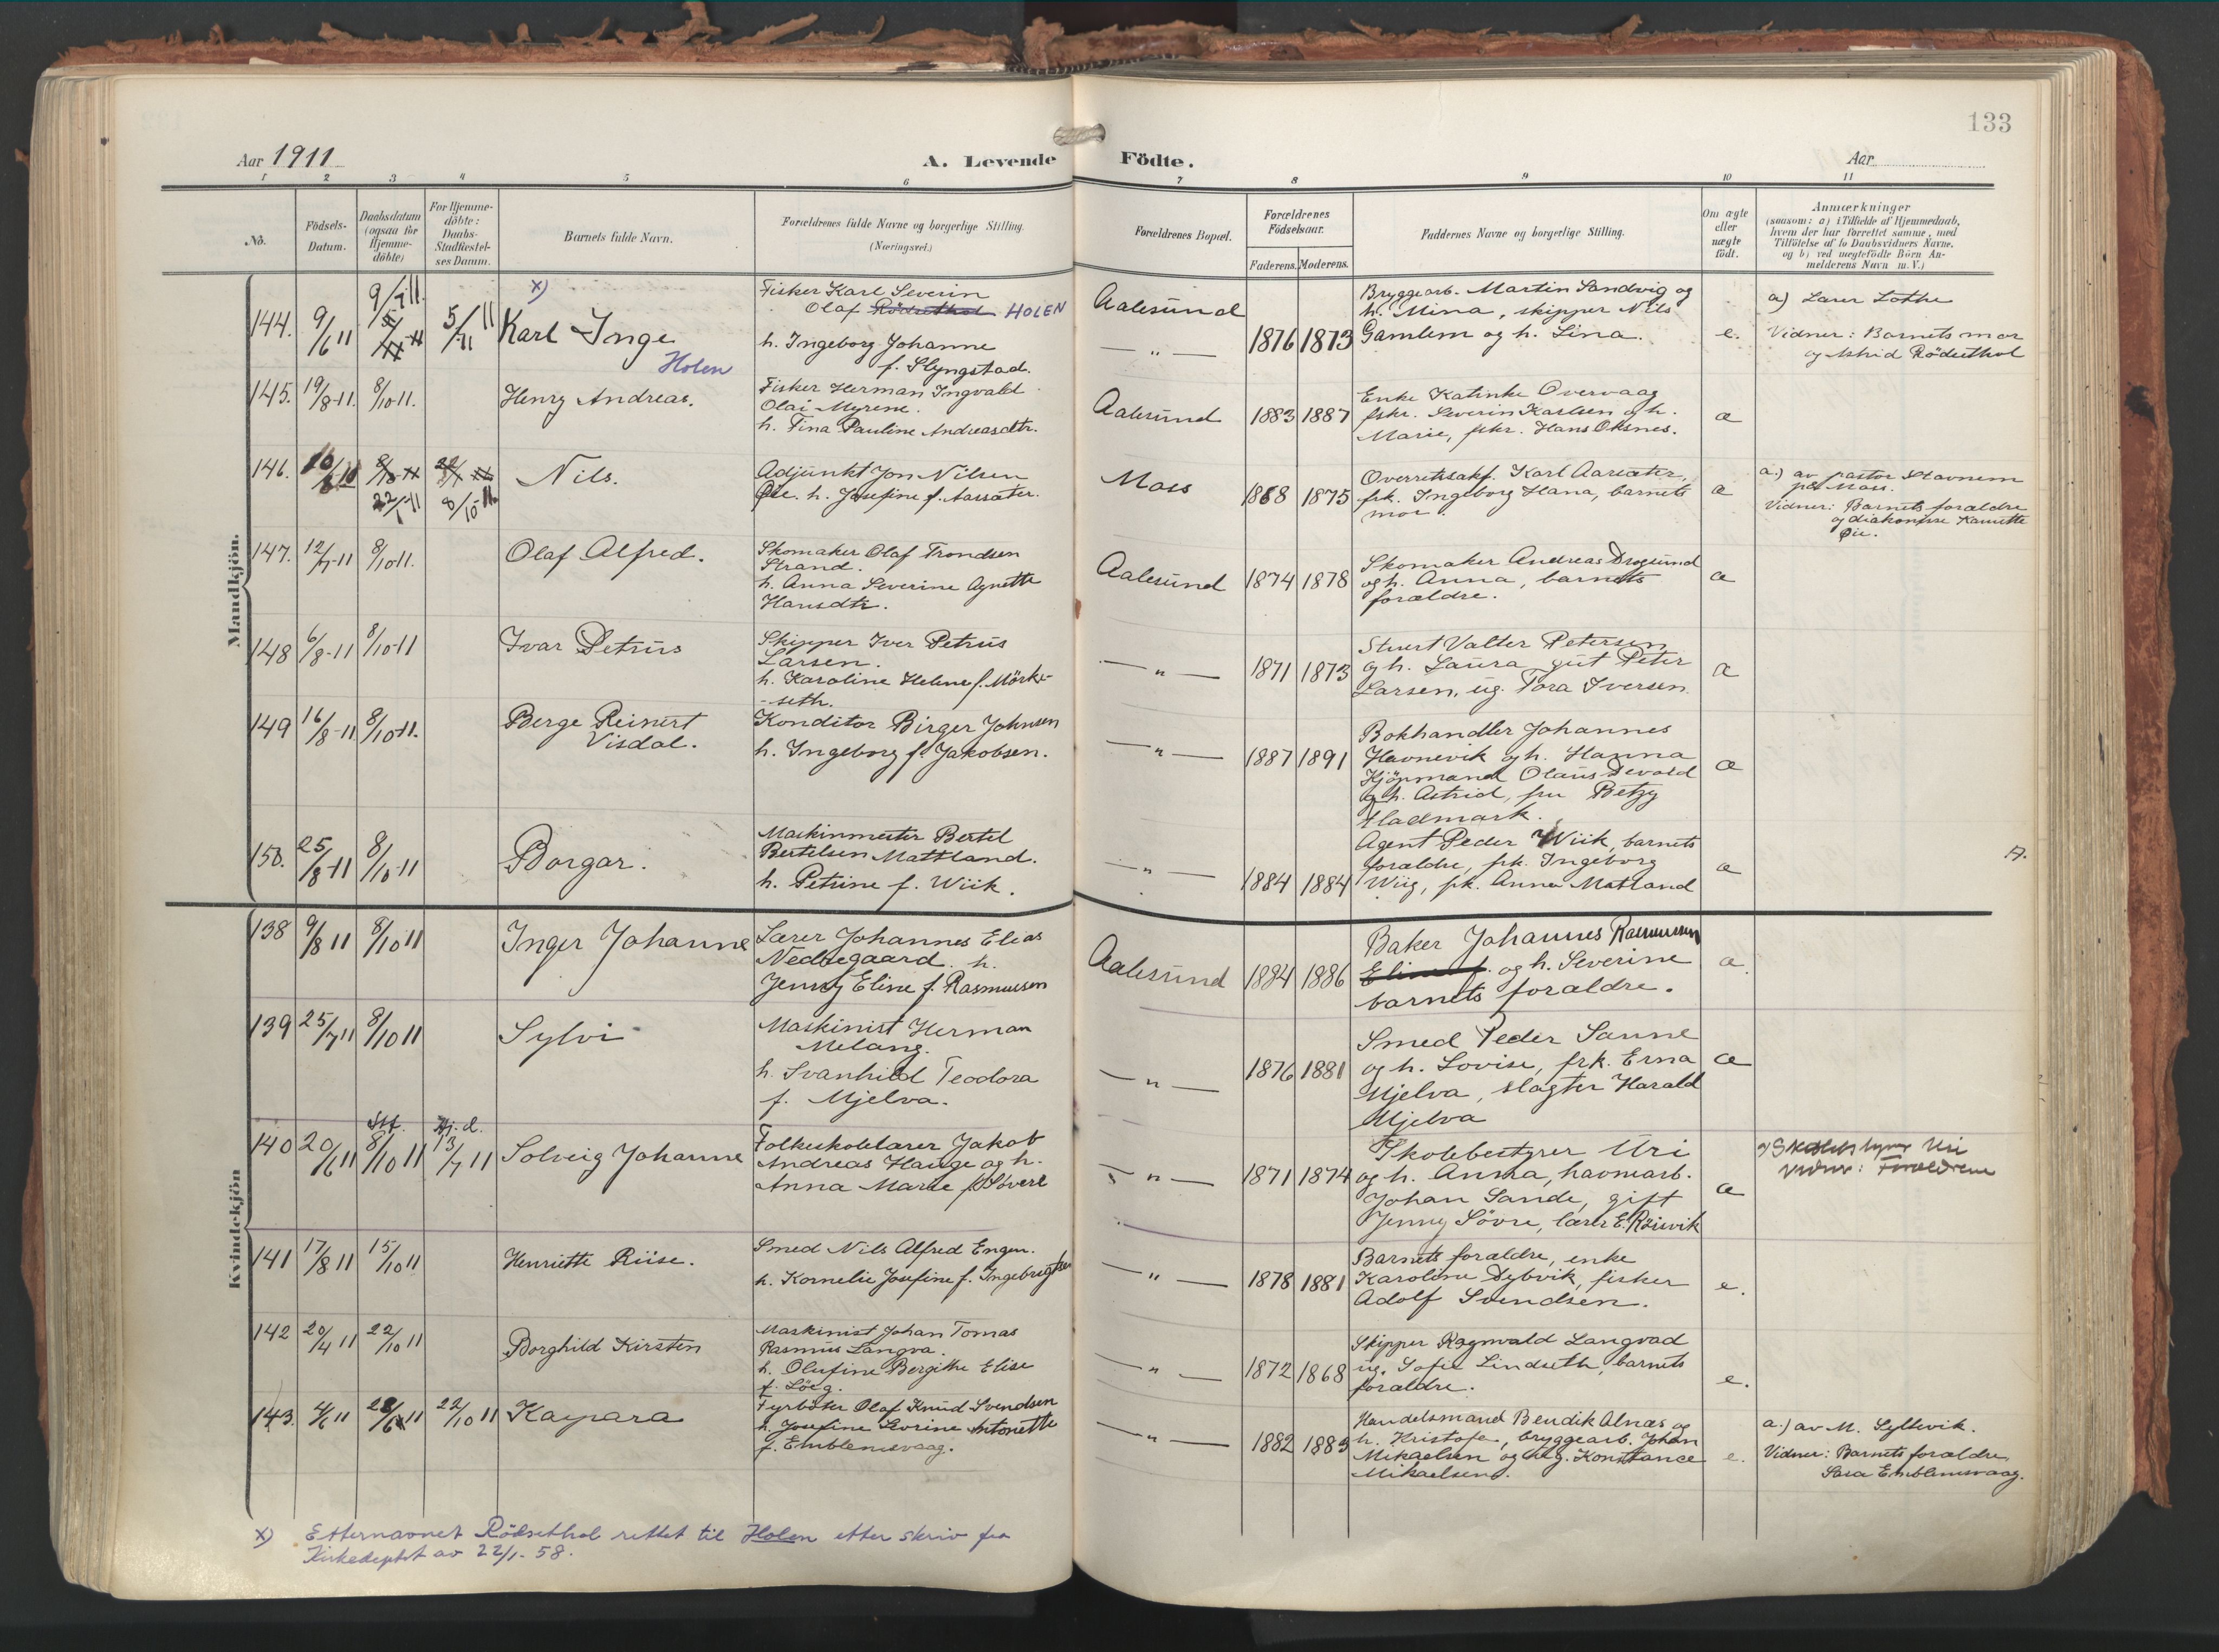 133
Aar 1911
A. Levende Födte.
Aar
1 2 3 4 5 6 7 8 9 10 11
No.
Födsels-
Datum.
Daabsdatum
(ogsaa for
Hjemme-
döbte)
For Hjemme-
döbte:
Daabs-
Stadfæstel-
ses Datum.
Barnets fulde Navn.
Forældrenes fulde Navne og borgerlige Stilling.
(Næringsvei.)
Forældrenes Bopæl.
Forældrenes
Födselsaar.
Faderens. Moderens.
Faddernes Navne og borgerlige Stilling.
Om ægte
eller
uægte
födt.
Anmærkninger
(saasom: a) i Tilfælde af Hjemmedaab,
hvem der har forrettet samme, med
Tilföielse af to Daabsvidners Navne.
og b) ved uægtefödte Börn An-
melderens Navn m. V.)
Mandkjön.
144. 9/6 11
9/7 11.
5/11 11
x)
Karl Inge
Holen
Fisker Karl Severin
Olaf Rödsethol HOLEN
h. Ingeborg Johanne
f. Slyngstad.
Aalesund
— " —
1876 1873
Bryggearb. Martin Sandvig og
h. Mina, skipper Nils
Gamlem og h. Lina.
e.
a) Lærer Lothe
Vidner: Barnets mor
og Astrid Rödsethol
145. 19/8-11. 8/10-11.
Henry Andreas.
Fisker Herman Ingvald
Olai Myrene.
h. Tina Pauline Andreasdtr.
Aalesund
1883 1887
Enke Katinke Overvaag
fskr. Severin Karlsen og h.
Marie, fskr. Hans Oksnes.
æ
146.
8/10-11.
Nils.
Adjunkt Jon Nilsen
Øie. h. Josefine f. Aarsæter.
Moss
1868 1875
Overretssakf. Karl Aarsæter,
frk. Ingeborg Hana, barnets
mor.
æ
a.) av pastor Stavnem
på Moss.
Vidner: Barnets forældre
og diakonisse Kamitte
Øie.
147. 12/7-11 8/10-11.
Olaf Alfred.
Skomaker Olaf Trondsen
Strand.
h. Anna Severine Agnette
Hansdtr.
Aalesund
1874 1878
Skomaker Andreas Drogsund
og h. Anna, barnets
forældre.
æ
148 6/8-11 8/10-11
Ivar Petrus
Skipper Iver Petrus
Larsen.
h. Karoline Helene f. Mörke-
-seth.
— " —
1871 1873
Stuert Valter Petersen
og h. Laura, gut Peter
Larsen, ug. Tora Iversen
æ
149 16/8-11 8/10-11.
Berge Reinert
Visdal.
Konditor Birger Johnsen
h. Ingeborg f. Jakobsen.
— " —
1887 1891
Bokhandler Johannes
Havnevik og h. Hanna
Kjöpmand Olaus Devold
og h. Astrid, fru Betzy
Hadmark.
æ
150. 25/8-11 8/10-11
Borgar.
Maskinmester Bertel
Bertelsen Mattland.
h. Petrine f. Wiik.
— " —
1884 1884
Agent Peder Wiik, barnets
forældre, frk. Ingeborg
Wiig, frk. Anna Matland
æ
Kvindekjön
138 9/8 11 8/10 11
Inger Johanne
Lærer Johannes Elias
Nedregaard. h.
Jenny Eline f. Rasmussen
Aalesund
1884 1886
Baker Johannes Rasmussen
Eline f. og h. Severine
barnets forældre.
æ.
139 25/7 11 8/10 11
Sylvi
Maskinist Herman
Melang.
h. Svanhild Teodora
f. Mjelva.
— " —
1876 1881
Smed Peder Sanne
og h. Lovise, frk. Erna
Mjelva, slagter Harald
Mjelva
æ
140 20/6 11
Stf.
8/10 11
Hj. d.
13/7 11
Solveig Johanne
Folkeskolelærer Jakob
Andreas Hauge og h.
Anna Marie f. Sövere
— " —
1871 1874
Skolebestyrer Uri
og h. Anna, havnearb.
Johan Sande, gift
Jenny Sövre, lærer E. Röisvik
æ
a) Skolebestyrer Uri
Vidner: Forældrene
141 17/8 11 15/10 11
Henriette Riise.
Smed Nils Alfred Engen.
h. Kornelie Josefine f. Ingebrigtsen
— " —
1878 1881
Barnets forældre, enke
Karoline Dybvik, fisker
Adolf Svendsen.
e.
142 20/4 11 22/10 11
Borghild Kirsten
Maskinist Johan Tomas
Rasmus Langva.
h. Olufine Bergithe Elise
f. Löeg.
— " —
1872 1868
Skipper Ragnvald Langvad
ug. Sofie Lindseth, barnets
forældre.
e.
143. 4/6 11 28/6 11 22/10 11
Kaspara
Fyrböter Olaf Knud Svendsen
h. Josefine Severine Antonette
f. Emblemsvaag.
— " —
1882 1885
Handelsmand Bendik Alnæs og
h. Kristofa, bryggearb. Johan
Mikaelsen og ug. Konstance
Mikaelsen.
e.
a.) av M. Syltevik.
Vidner: Barnets forældre,
Sara Emblemsvaag.
x) Etternavnet Rödsethol rettet til Holen etter skriv fra
Kirkedeptet av 22/1-58.